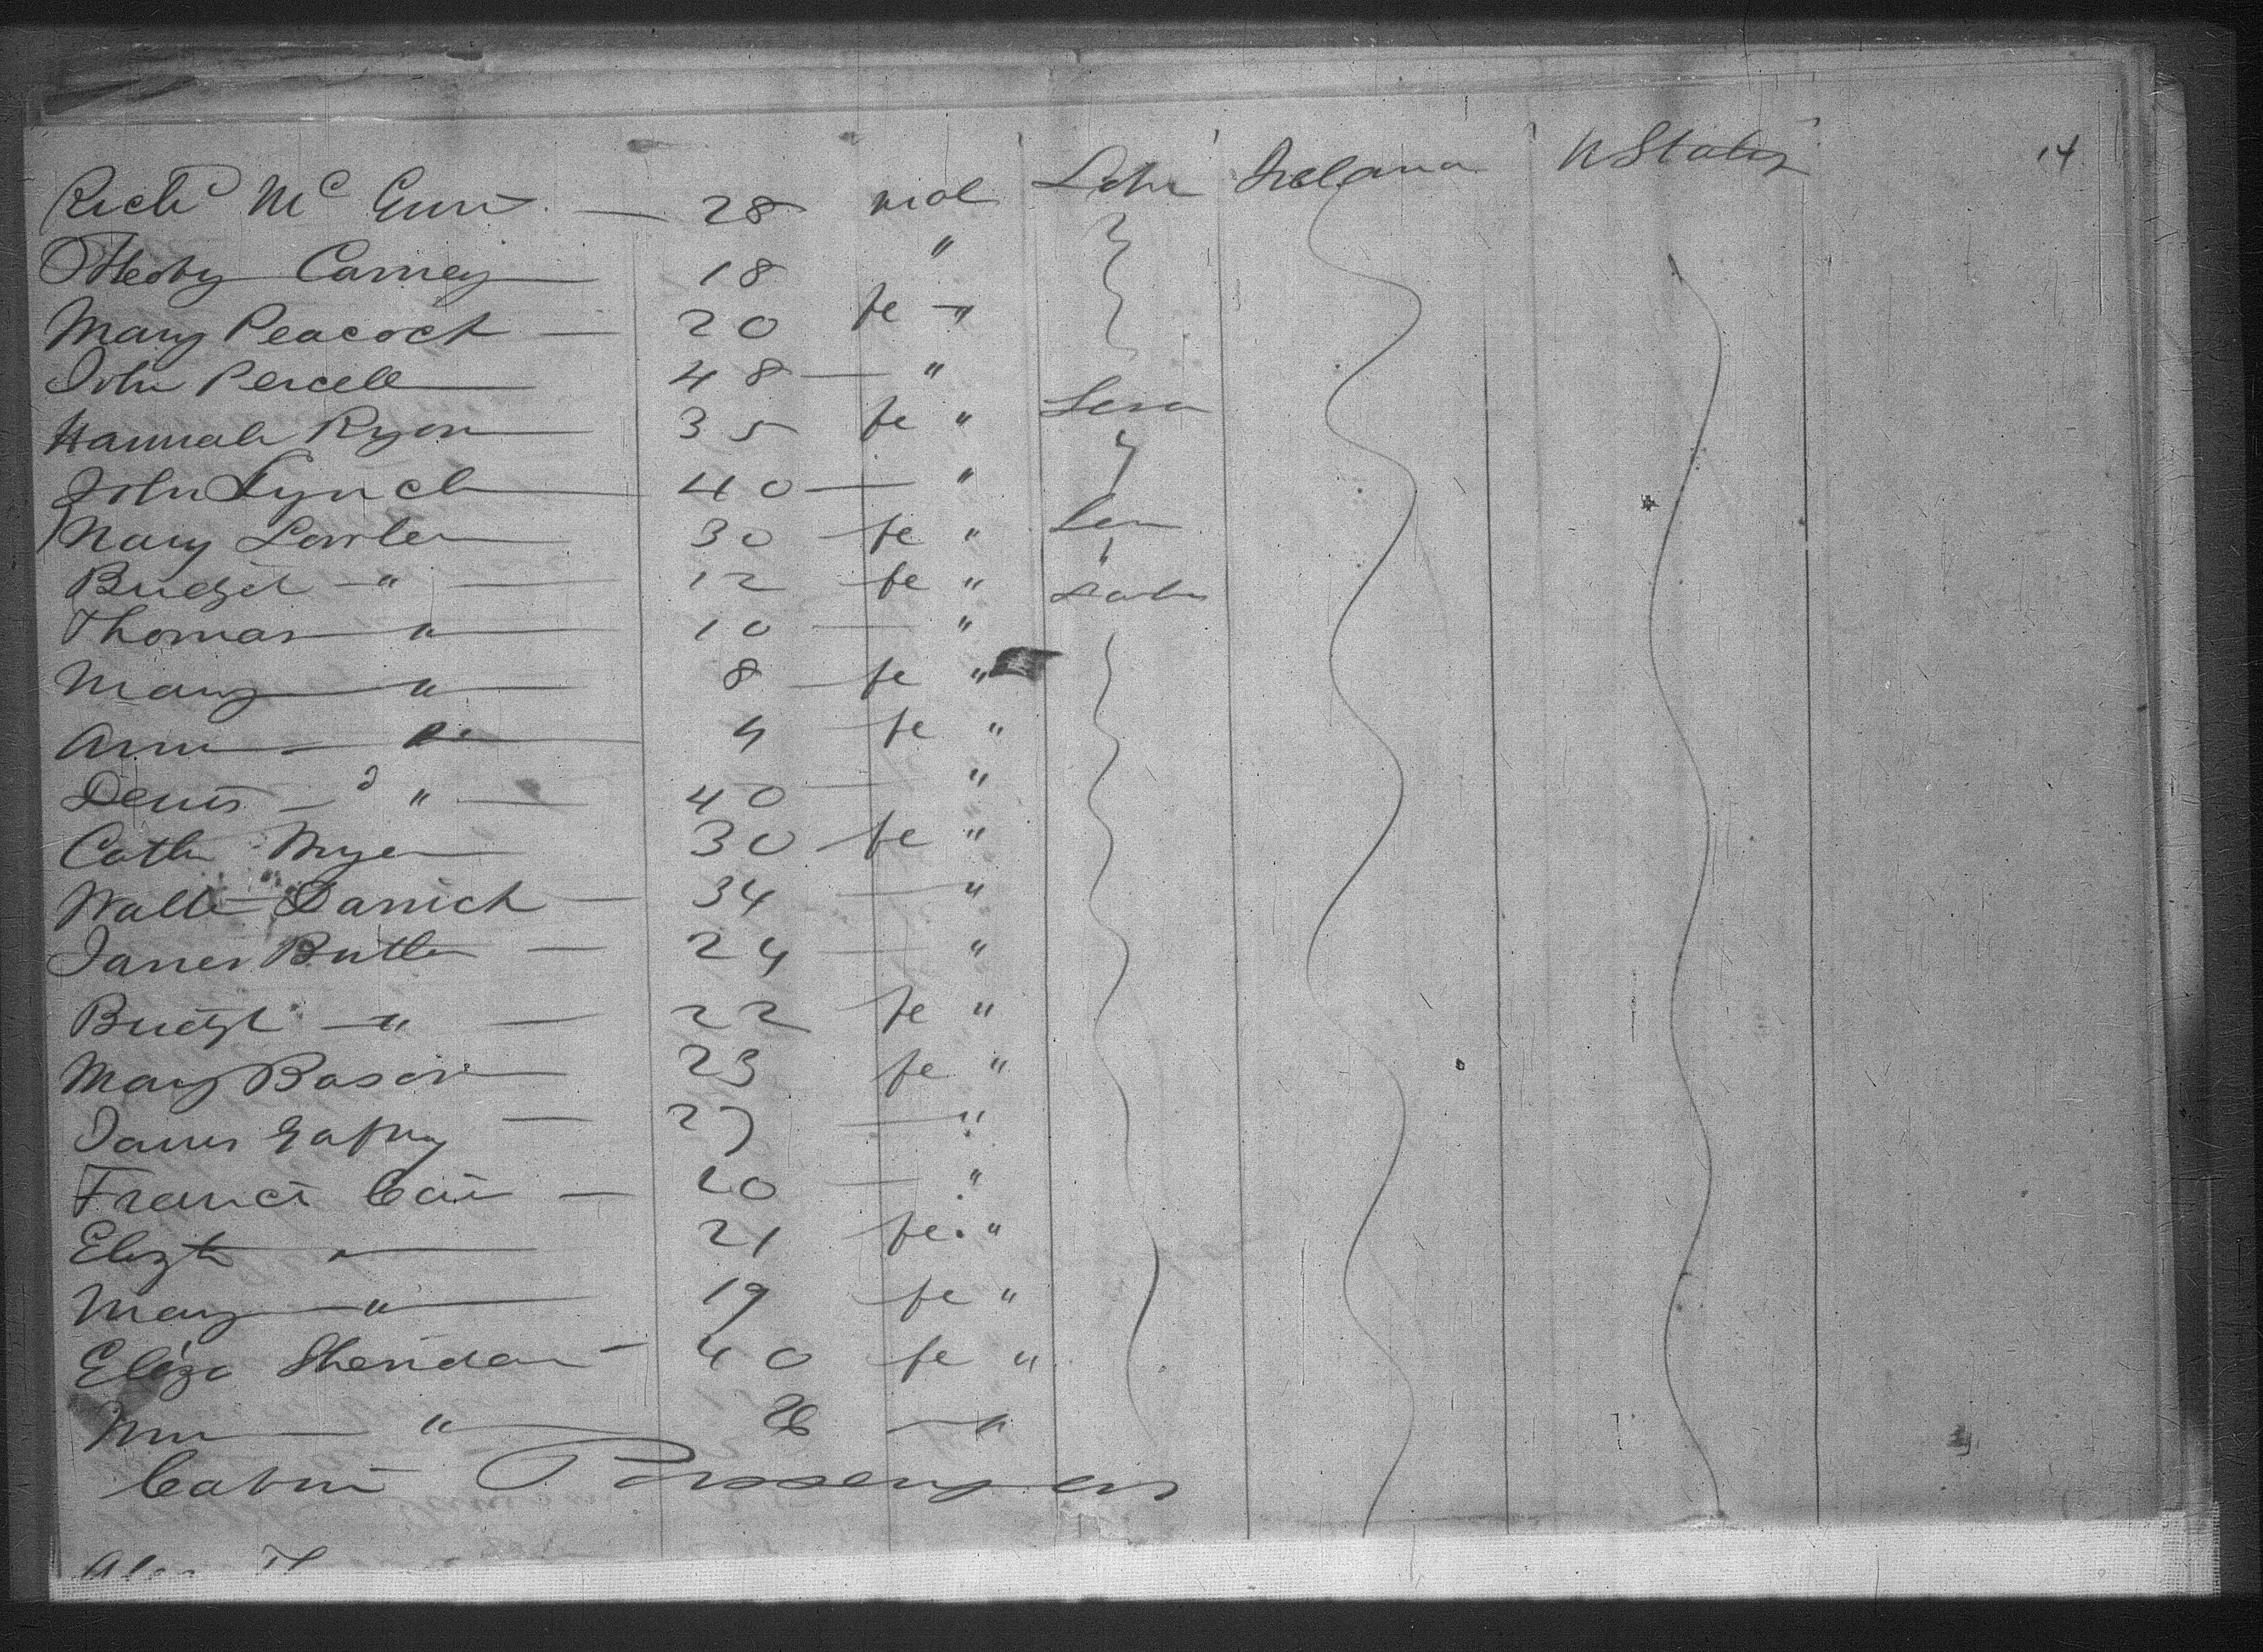 14
Rich^d M^c Guire — 28 male Labr Ireland U States
Carney 18 "
Mary Peacock — 20 fe - "
John Percell 48 — "
Hannah Ryon 35 fe " Serv
John Lynch 40 — "
Mary Lawler 30 fe "
Bridget - " — 12 fe "
Thomas " 10 — " Labr
Mary " 8 fe "
Ann — 4 fe "
Denis — " — 40 — "
Cath Myer 30 fe "
Walter — 34 — "
James Butler — 24 — "
Bridgt — " — 22 fe "
Mary Bason 23 fe "
James Gafny — 27 — "
Francis Cain — 20 — "
Elizth " 21 fe . "
Mary " 19 fe "
Eliza Sheridan — 40 fe "
Wm — " — — "
Cabin Passengers